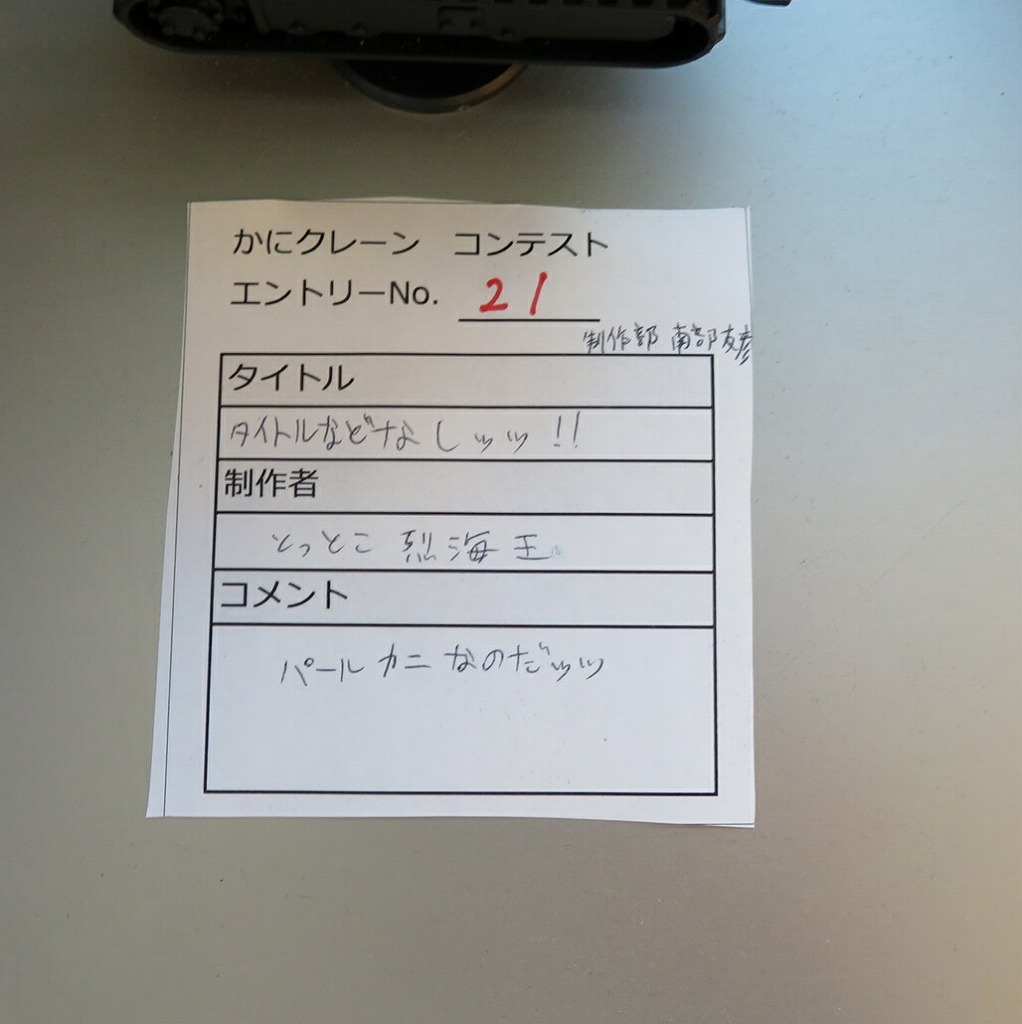 かにクレーン コンテスト
エントリーNo. 21
制作部 南部友彦
タイトル
タイトルなどなしッッ!!
制作者
とっとこ 烈海王
コメント
パールカニなのだッッ